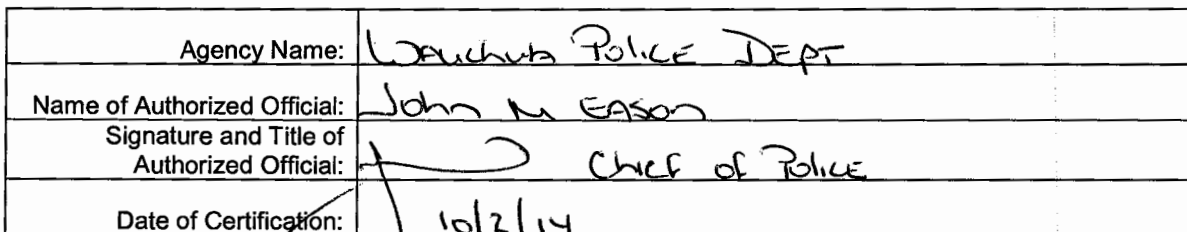 Agency Name: Wauchula Police Dept
Name of Authorized Official: John M Eason
Signature and Title of
Authorized Official: Chief of Police
Date of Certification: 10/2/14